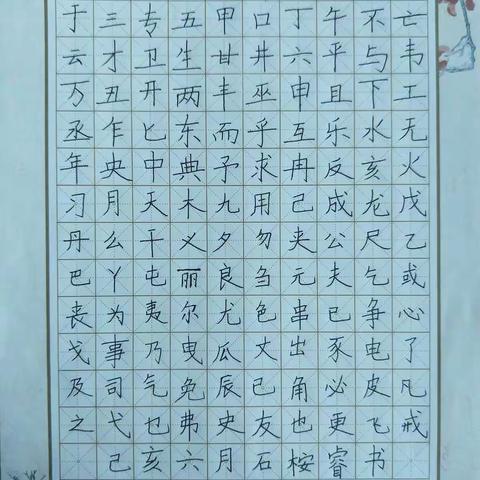 于三专五甲口丁午不亡
云才卫生甘井六平与韦
万丑开两丰巫申且下工
丞乍匕东而乎互乐水无
年央中典予求冉反亥火
习月天木九用己成龙戊
丹么干义夕勿夹公尺乙
巴丫屯丽良刍元夫乞或
丧为夷尔尤色串已争心
戈事乃曳瓜丈出豕电了
及司气免辰巳角必皮凡
之弋也弗史友也更飞戒
己亥六月石桉睿书